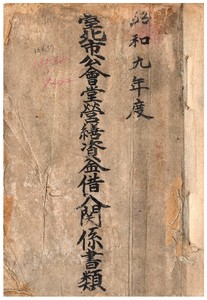 昭和九年度
臺北市公會堂營繕資金借入關係書類